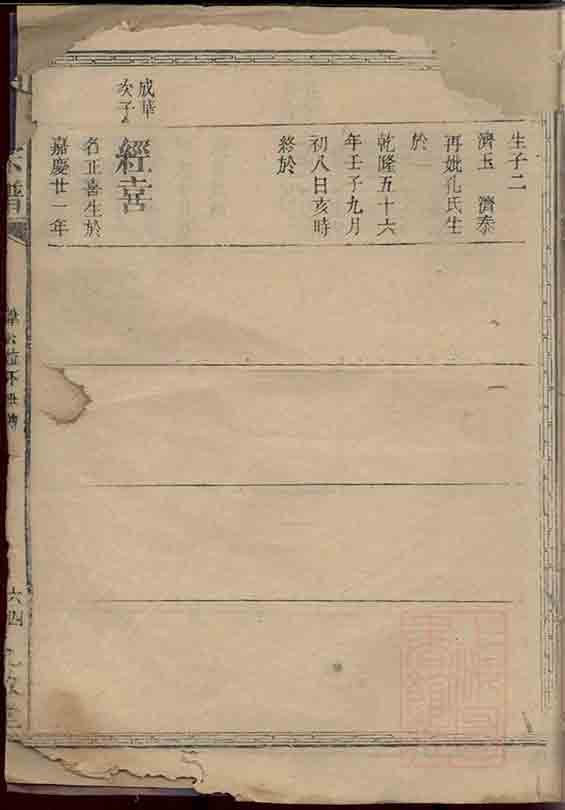 生子二
濟玉　濟泰
再妣孔氏生
於
乾隆五十六
年壬子九月
初八日亥時
終於
成華
次子
經喜
名正喜生於
嘉慶廿一年
六四